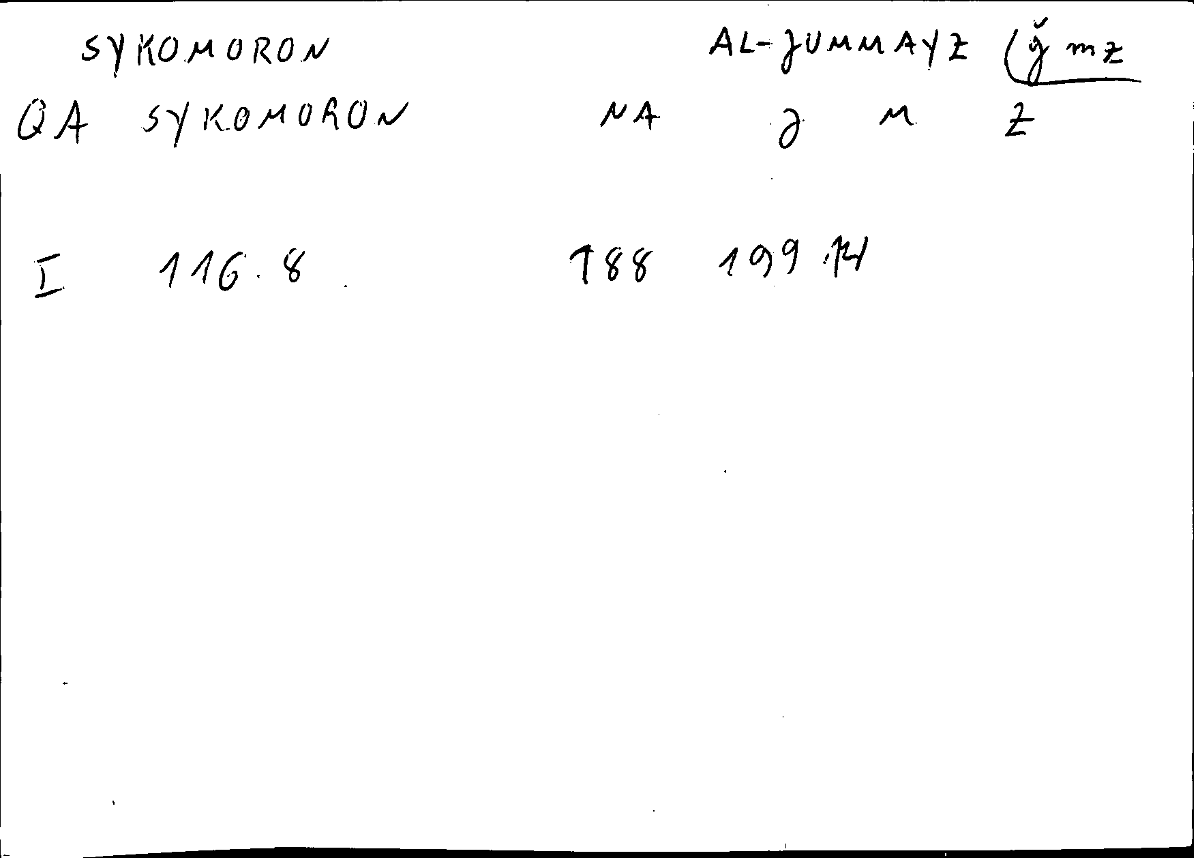 SYKOMORON AL-JUMMAYZ (ǧ mz
QA SYKOMORON NA J M Z
I 116.8 188 199.14